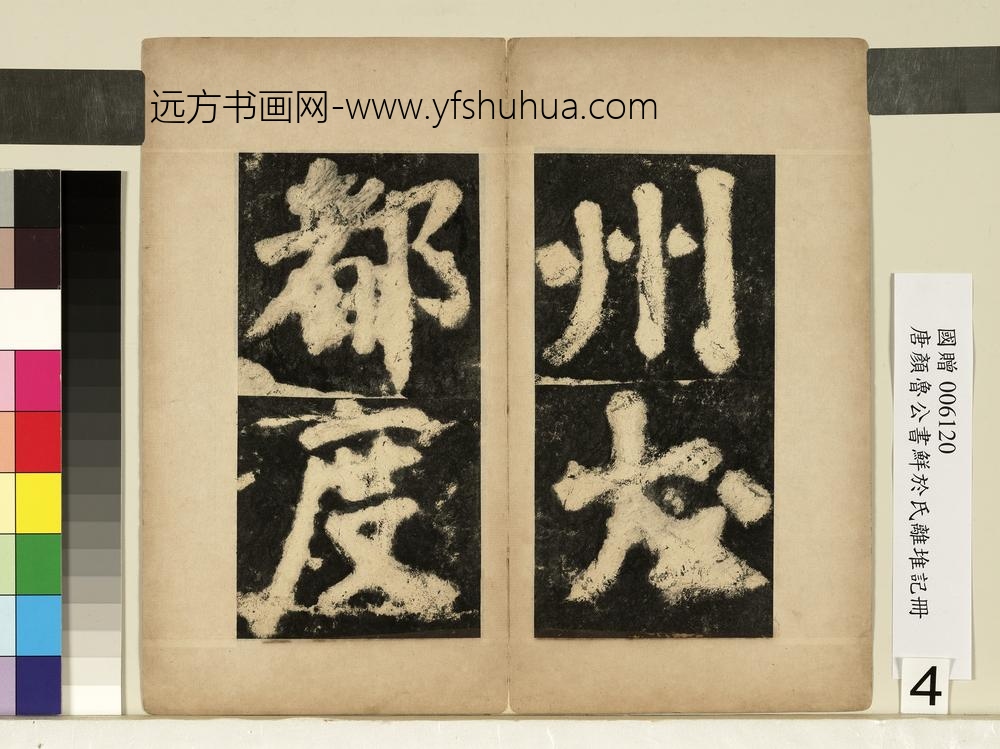 远方书画网-www.yfshuhua.com
州
都
度
國贈 006120
唐顏魯公書鮮於氏離堆記冊
4